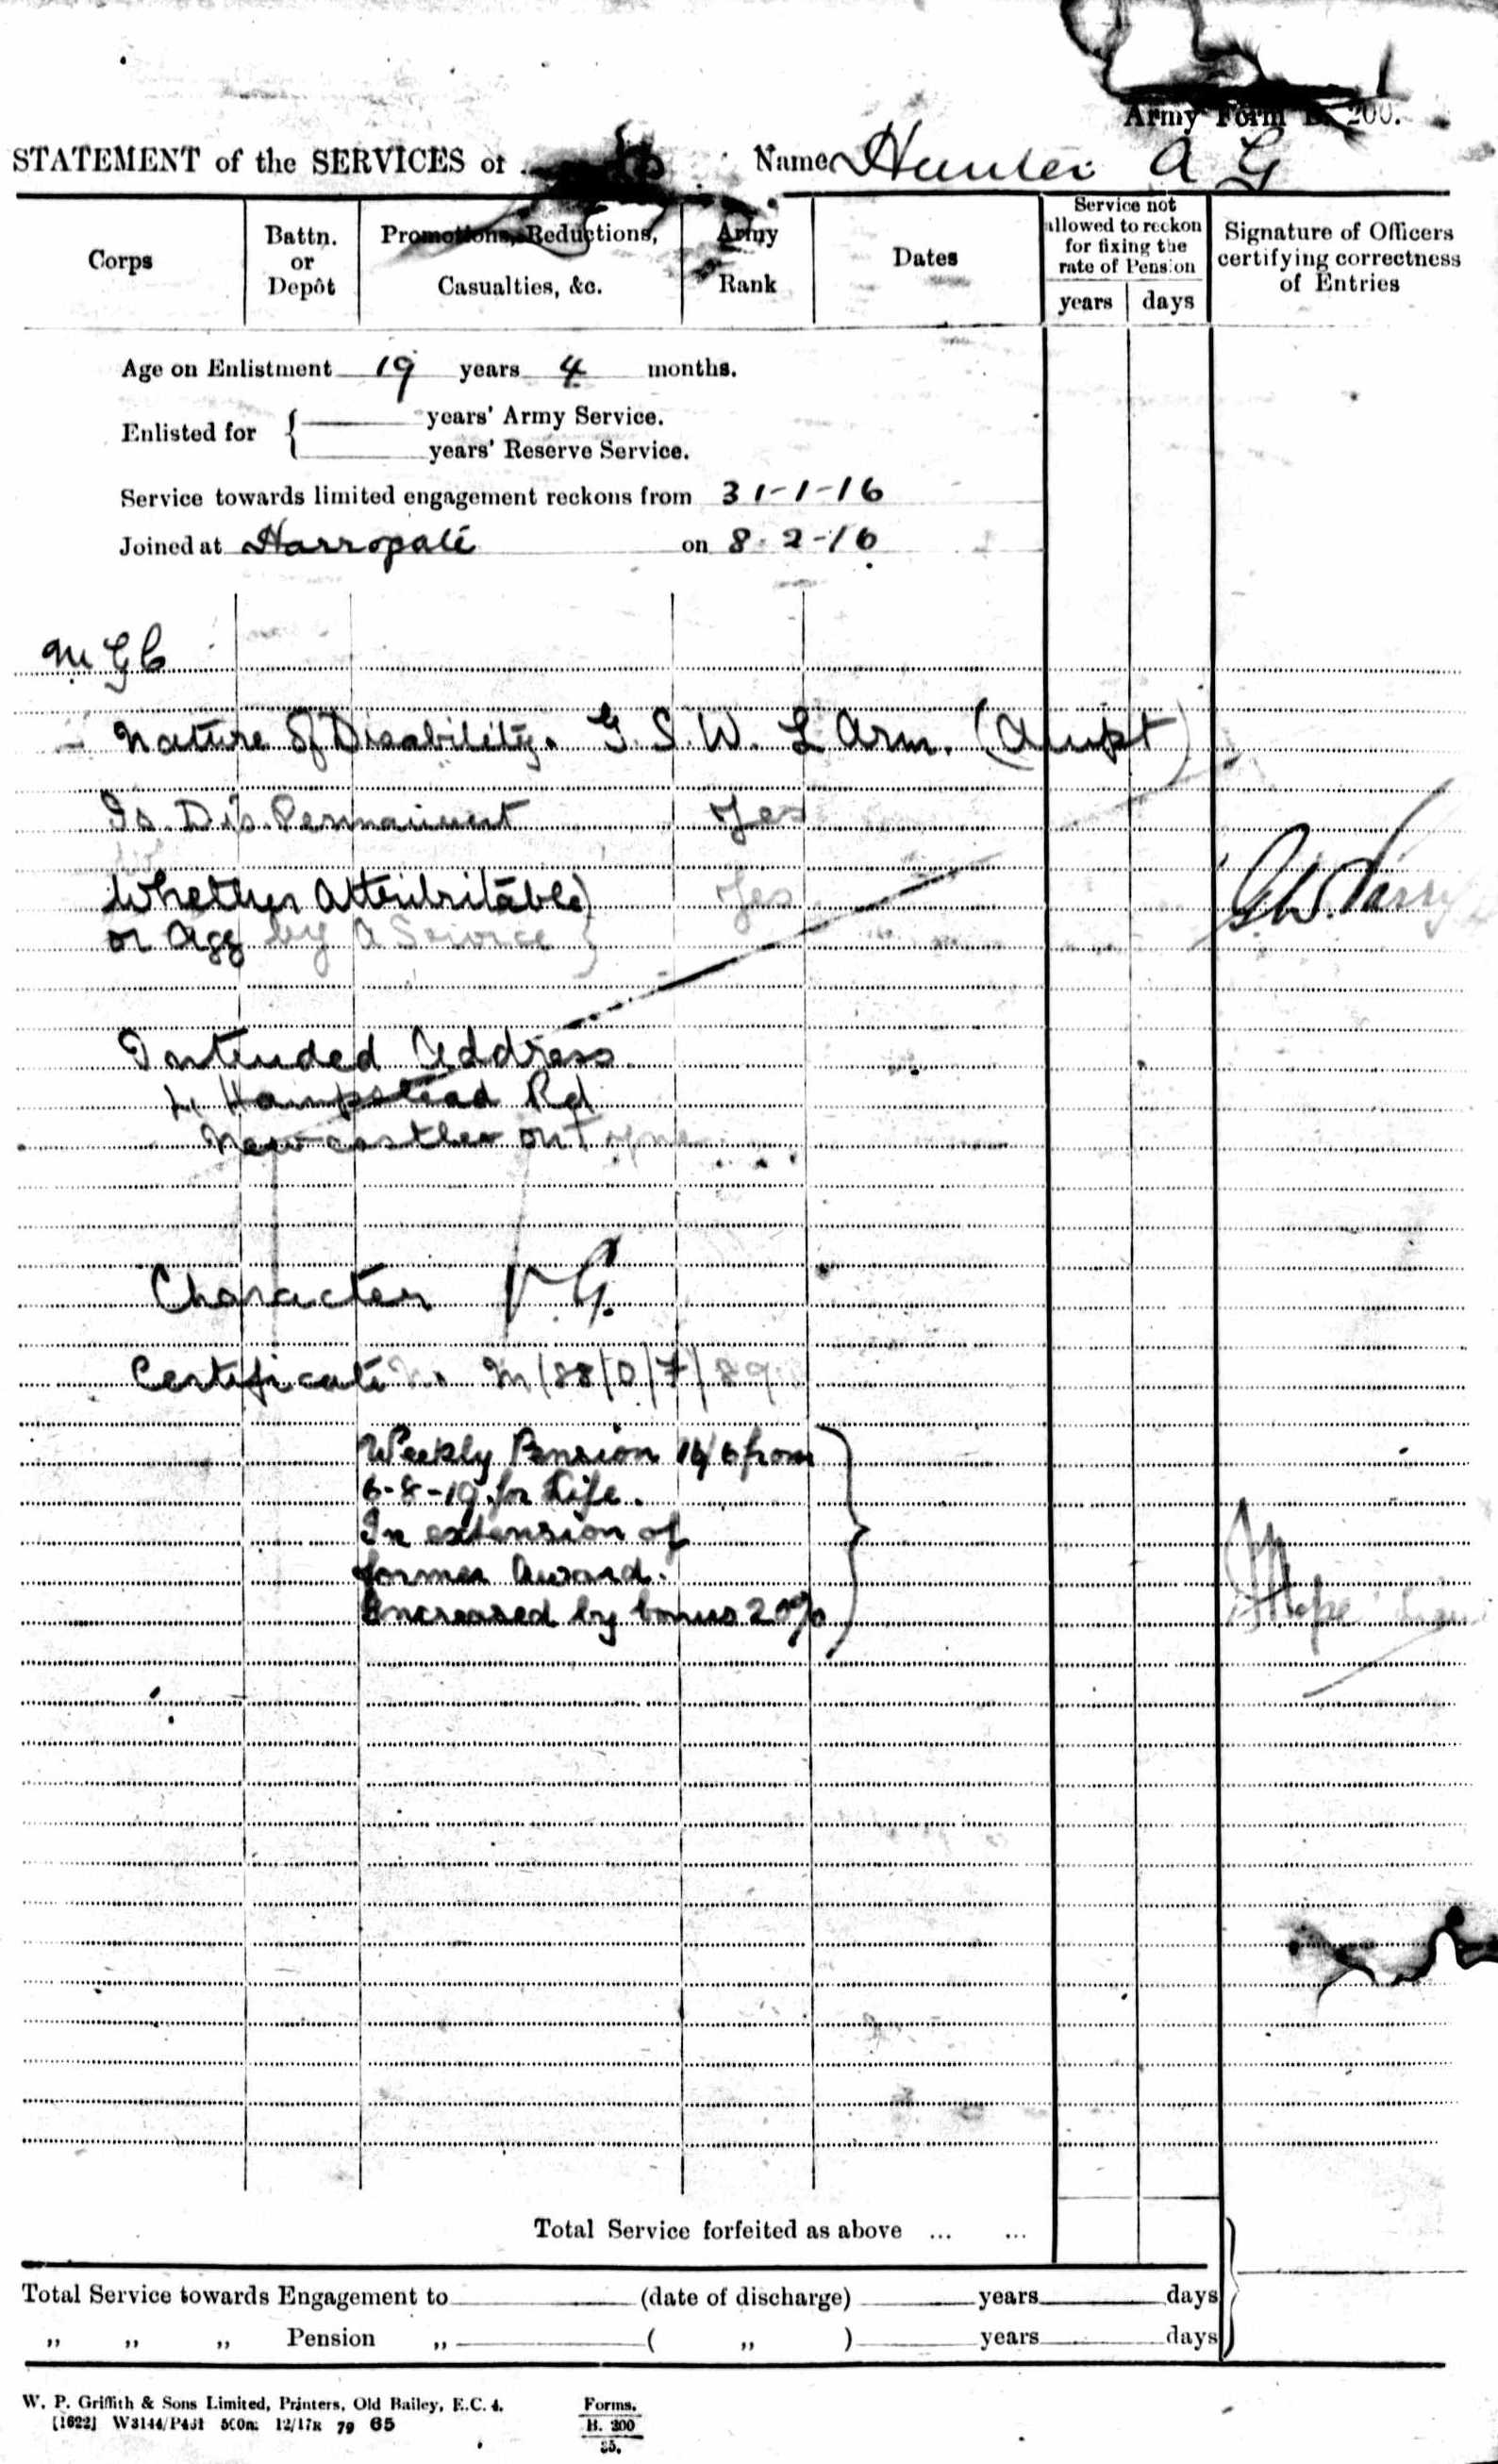 Army Form B. 200.
STATEMENT of the SERVICES of Name Hunter A G
Corps
Battn. or Depôt
Promotions, Reductions, Casualties, &c.
Army Rank
Dates
Service not allowed to reckon for fixing the rate of Pension
years days
Signature of Officers certifying correctness of Entries
Age on Enlistment 19 years 4 months.
Enlisted for { years' Army Service.
years' Reserve Service.
Service towards limited engagement reckons from 31-1-16
Joined at Harrogate on 8-2-16
M G C
Nature of Disability. G. S. W. L Arm. (Ampt)
Is Dis Permanent Yes
Whether Attributable } Yes
or Agg by A Service }
G W Parry
Intended Address
Hampstead Rd
Newcastle on Tyne
Character V.G.
Certificate No M/88/0/7/89
Weekly Pension 16/6 from
6-8-19 for Life.
In extension of
former Award.
Increased by bonus 20%
Total Service forfeited as above ... ...
Total Service towards Engagement to (date of discharge) years days
„ „ „ Pension „ ( „ ) years days
W. P. Griffith & Sons Limited, Printers, Old Bailey, E.C. 4.
[1622] W3144/P431 500m 12/17R 79 65
Forms.
B. 200
35.